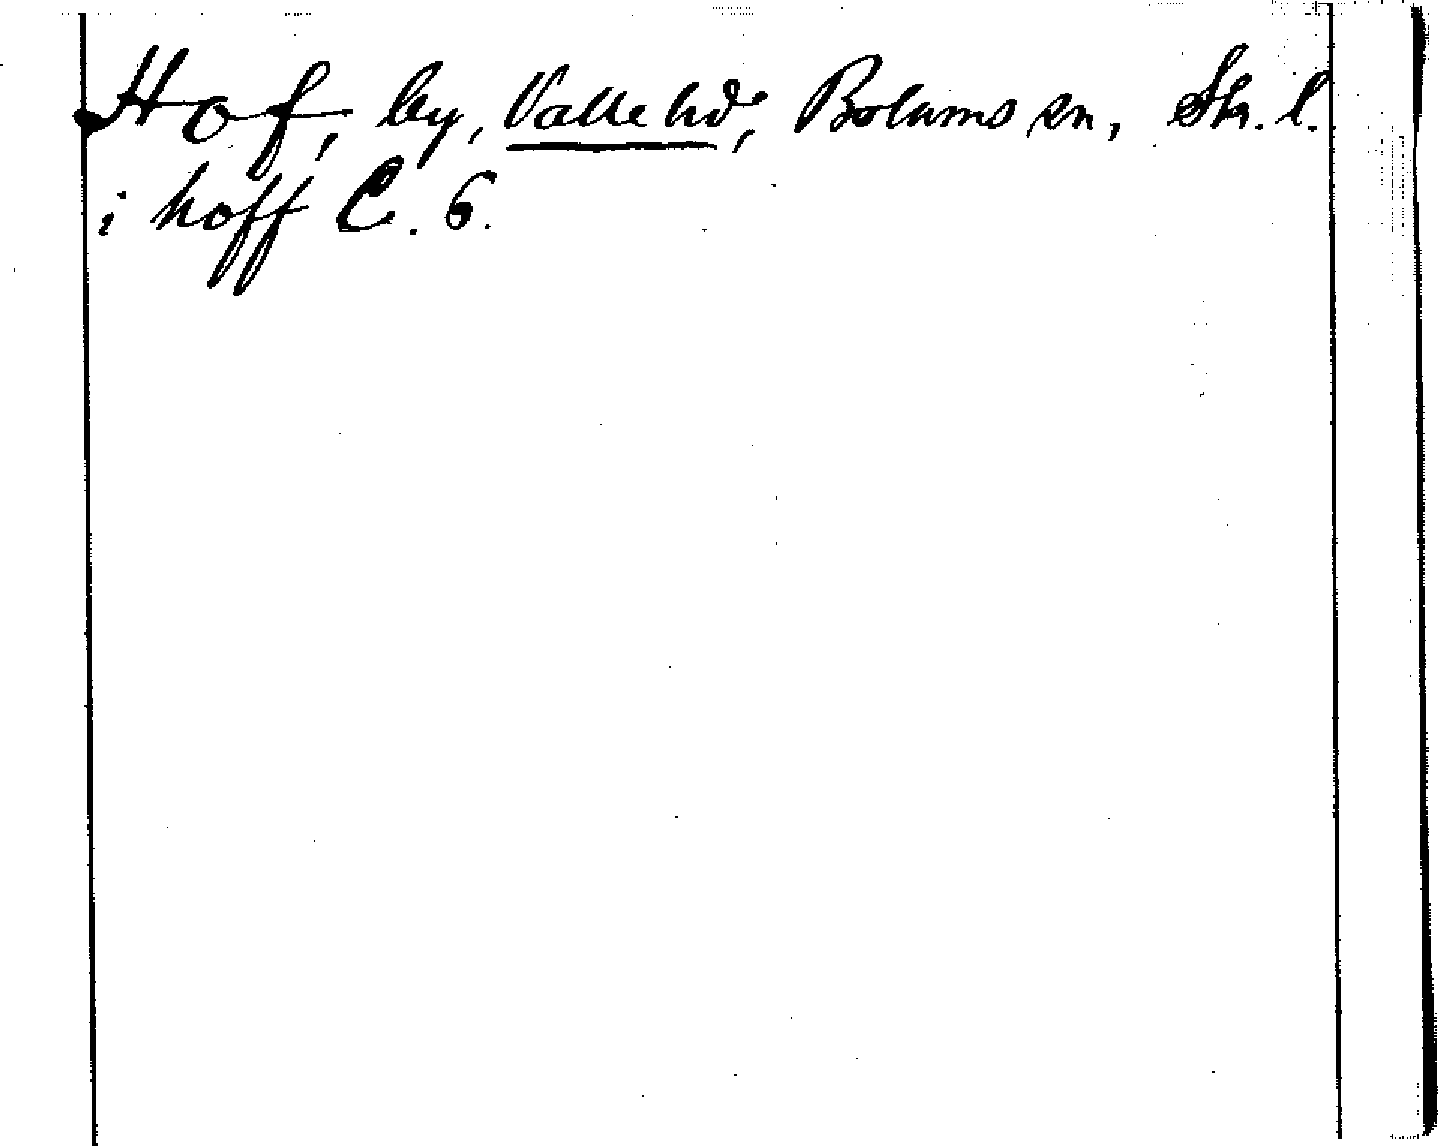 Hof, by, Valle hd, Bolums sn, Sk. l.
i hoff C. 6.